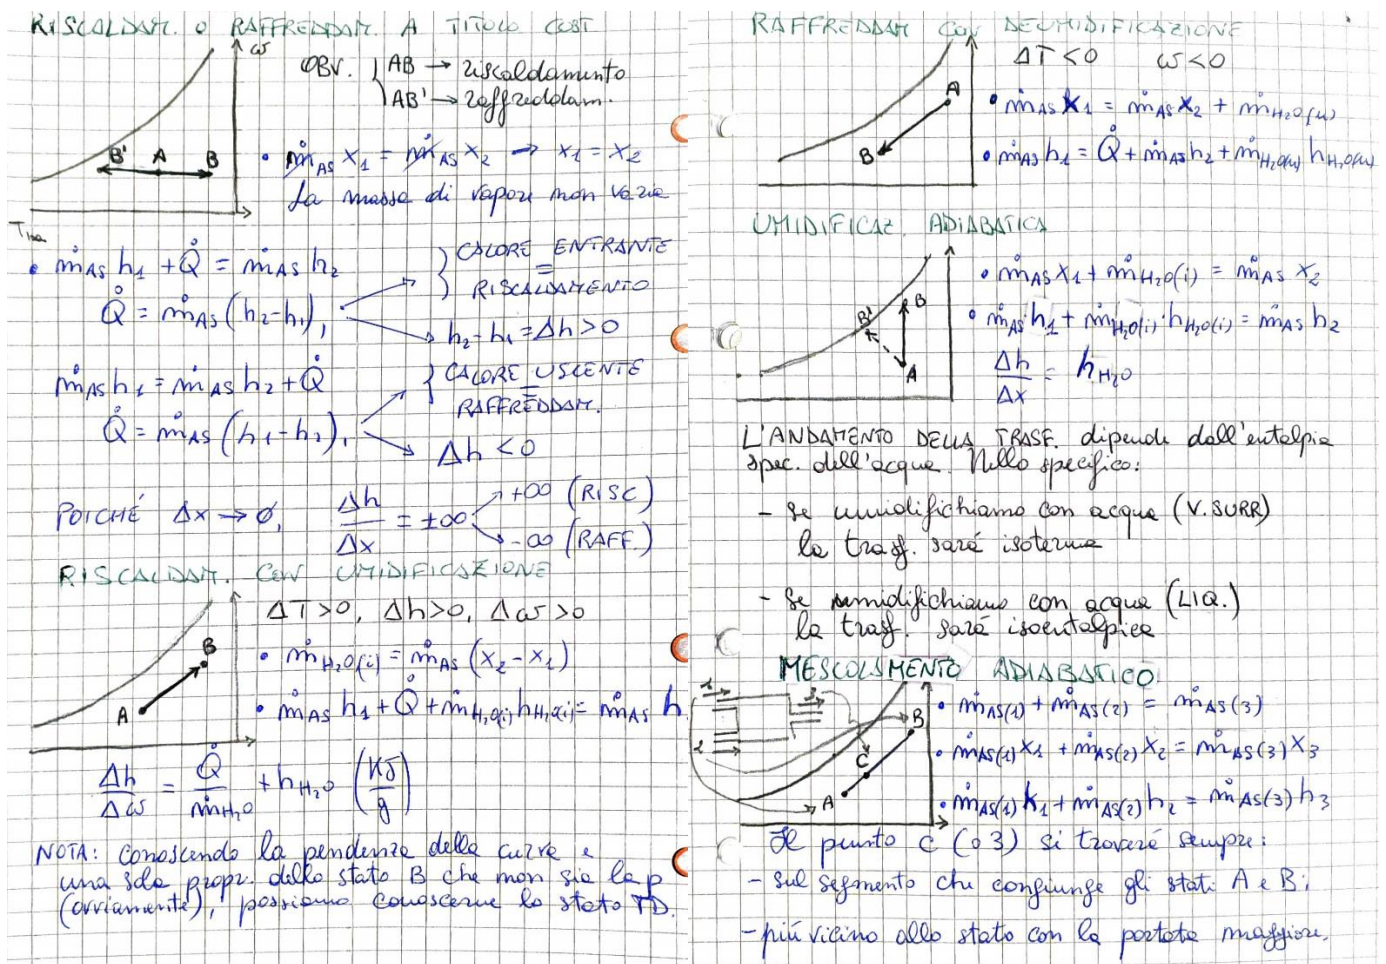 RISCALDAM. O RAFFREDDAM. A TITOLO COST
ω
OBV. { AB → riscaldamento
AB' → raffreddam.
B' A B
• ṁAS x1 = ṁAS x2 → x1 = x2
la massa di vapore non varia
• ṁAS h1 + Q̇ = ṁAS h2
Q̇ = ṁAS (h2-h1),
} CALORE ENTRANTE
=
RISCALDAMENTO
h2-h1 = Δh > 0
ṁAS h1 = ṁAS h2 + Q̇
Q̇ = ṁAS (h1-h2),
} CALORE USCENTE
=
RAFFREDDAM.
Δh < 0
POICHÉ Δx → 0, Δh/Δx = ±∞
+∞ (RISC)
-∞ (RAFF.)
RISCALDAM. CON UMIDIFICAZIONE
ΔT>0, Δh>0, Δω>0
A B
• ṁH2O(i) = ṁAS (x2-x1)
• ṁAS h1 + Q̇ + ṁH2O(i) hH2O(i) = ṁAS h
Δh/Δω = Q̇/ṁH2O + hH2O (KJ/g)
NOTA: conoscendo la pendenza della curva e
una sola propr. dello stato B che non sia la p
(ovviamente), possiamo conoscerne lo stato TD.
RAFFREDDAM CON DEUMIDIFICAZIONE
ΔT<0 ω<0
A
B
• ṁAS x1 = ṁAS x2 + ṁH2O(u)
• ṁAS h1 = Q̇ + ṁAS h2 + ṁH2O(u) hH2O(u)
UMIDIFICAZ. ADIABATICA
B' B
A
• ṁAS x1 + ṁH2O(i) = ṁAS x2
• ṁAS h1 + ṁH2O(i) · hH2O(i) = ṁAS h2
Δh/Δx = hH2O
L'ANDAMENTO DELLA TRASF. dipende dall'entalpia
spec. dell'acqua. Nello specifico:
- se umidifichiamo con acqua (V. SURR)
la trasf. sarà isoterma
- se umidifichiamo con acqua (LIQ.)
la trasf. sarà isoentalpica
MESCOLAMENTO ADIABATICO
1 3
2
B
C
A
• ṁAS(1) + ṁAS(2) = ṁAS(3)
• ṁAS(1) x1 + ṁAS(2) x2 = ṁAS(3) x3
• ṁAS(1) h1 + ṁAS(2) h2 = ṁAS(3) h3
Il punto C (o 3) si troverà sempre:
- sul segmento che congiunge gli stati A e B;
- più vicino allo stato con la portata maggiore.